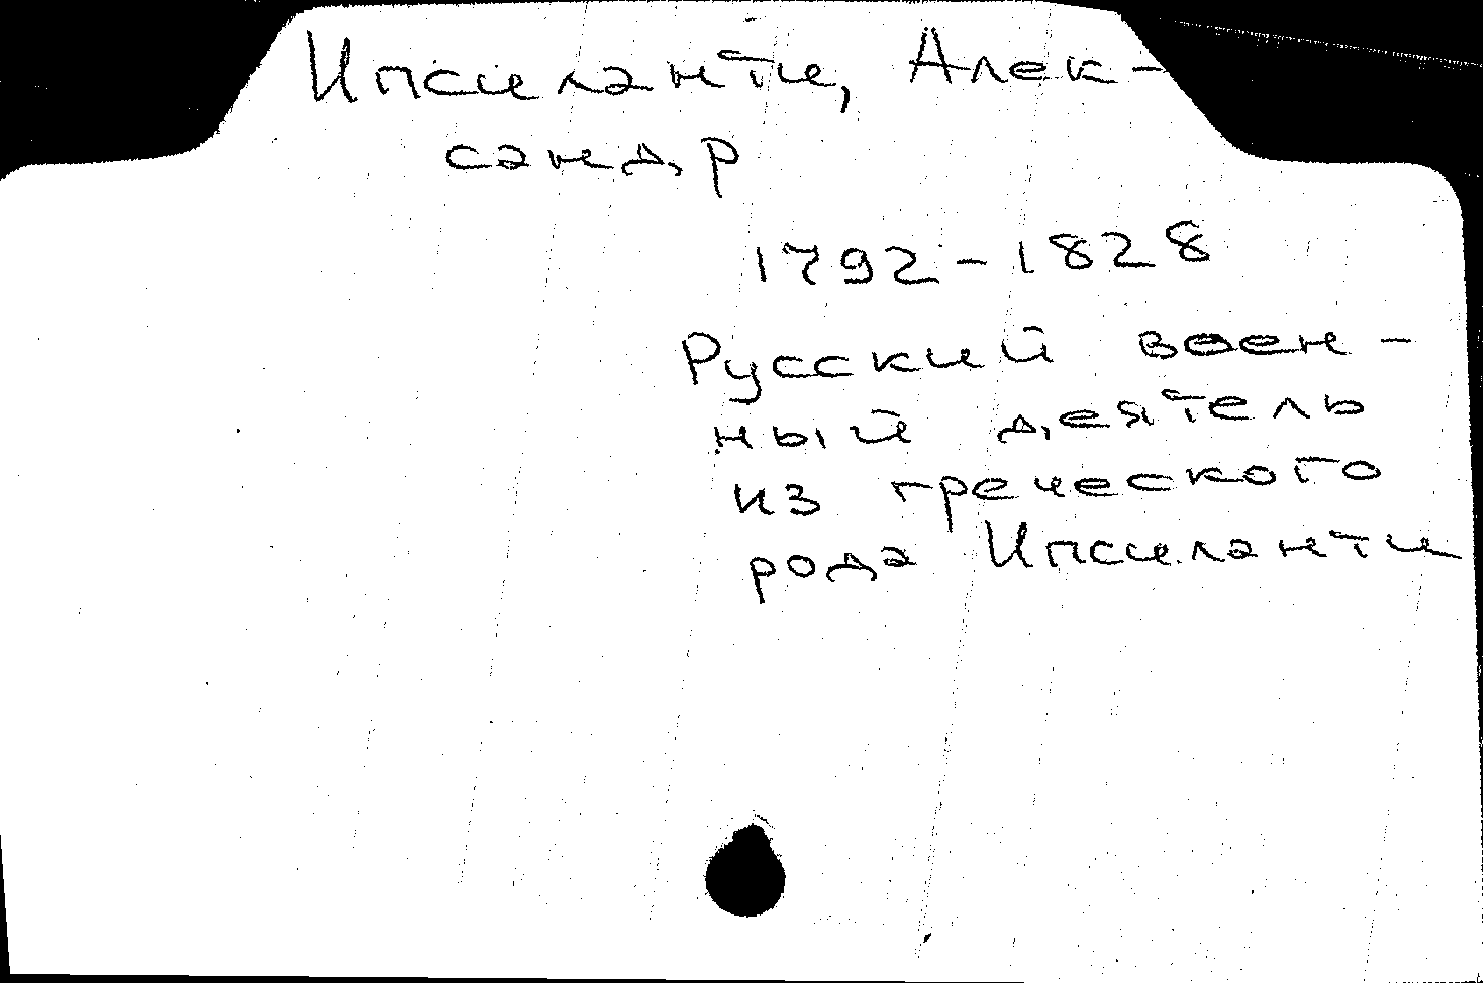 Ипсиланти, Алек-
сандр
1792-1828
Русский воен-
ный деятель
из греческого
рода Ипсиланти